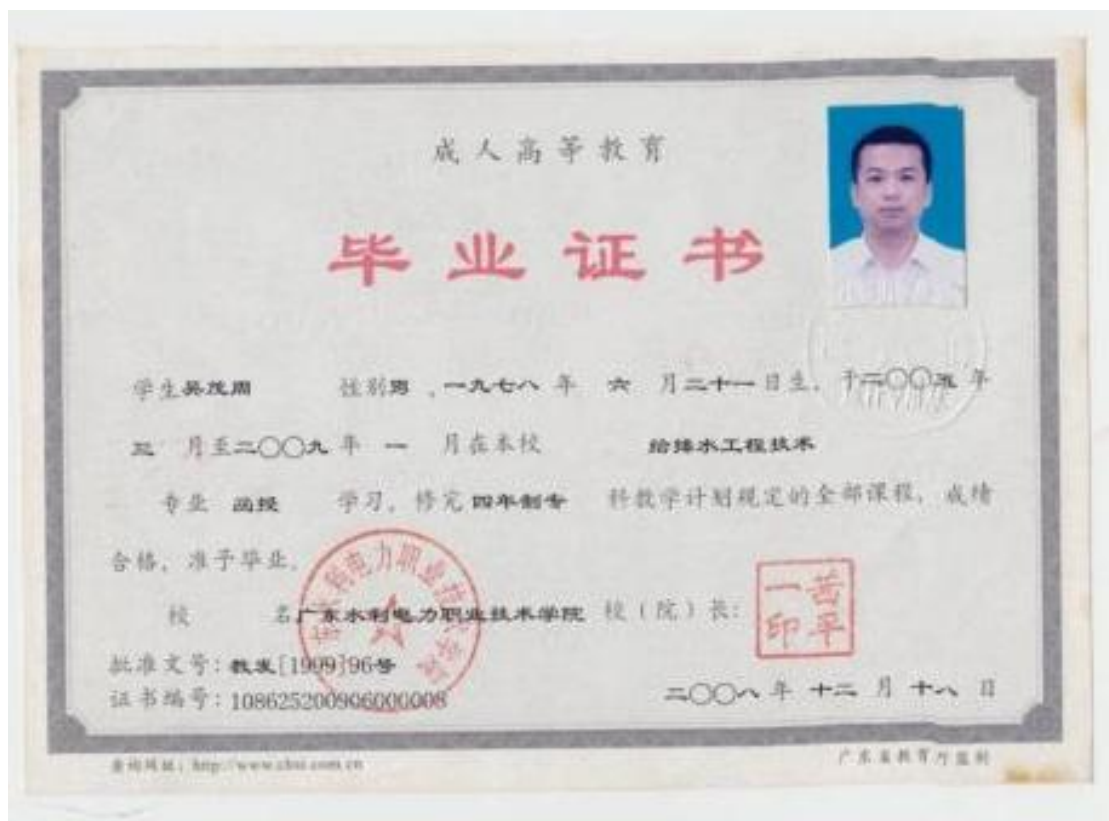 成人高等教育
毕业证书
学生吴茂周 性别男，一九七八年 六 月二十一日生，于二〇〇五年
三 月至二〇〇九年 一 月在本校 给排水工程技术
专业 函授 学习，修完四年制专 科教学计划规定的全部课程，成绩
合格，准予毕业。
校 名广东水利电力职业技术学院 校（院）长：
批准文号：教发[1999]96号
证书编号：108625200906000008
二〇〇八年 十二 月 十八 日
查询网址：http://www.chsi.com.cn
广东省教育厅监制